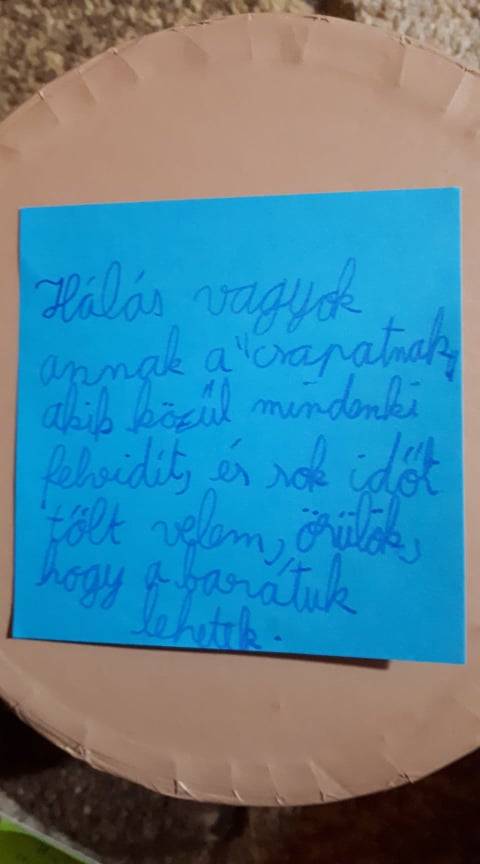 Hálás vagyok
annak a "csapatnak,
akik közűl mindenki
felvidít, és sok időt
tőlt velem, örülök,
hogy a barátuk
lehetek.